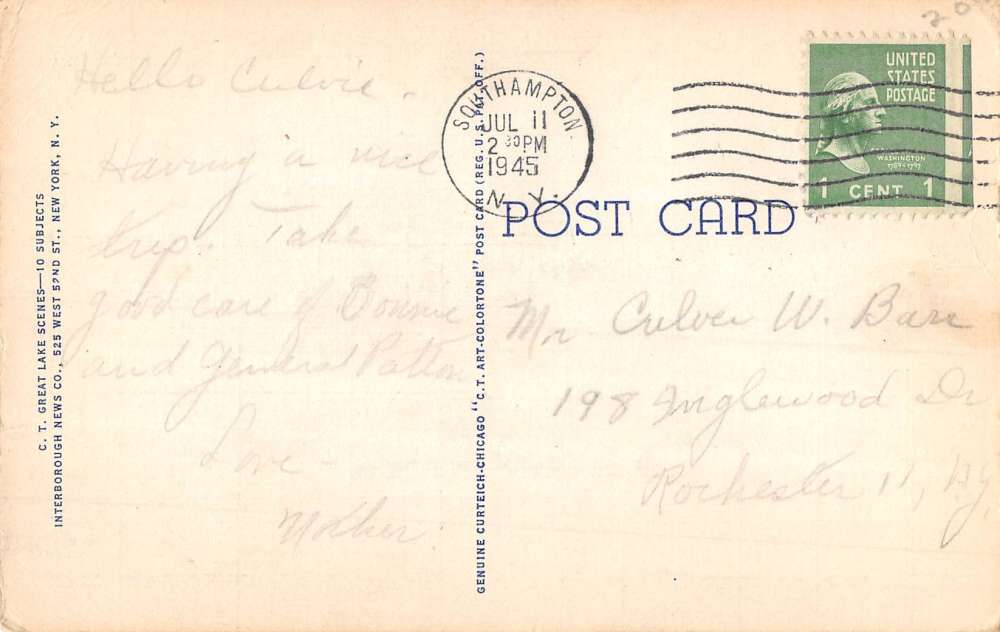 Hello Culvie.
Having a nice
trip. Take
good care of Bonnie
and General Patton
Love -
Mother.
C. T. GREAT LAKE SCENES—10 SUBJECTS
INTERBOROUGH NEWS CO., 525 WEST 52ND ST., NEW YORK, N. Y.
GENUINE CURTEICH-CHICAGO "C.T. ART-COLORTONE" POST CARD (REG. U.S. PAT. OFF.)
SOUTHAMPTON
JUL 11
2 30 PM
1945
N. Y.
UNITED
STATES
POSTAGE
WASHINGTON
1789-1797
1 CENT 1
POST CARD
Mr Culver W. Barr
198 Inglewood Dr
Rochester 11, N.Y.